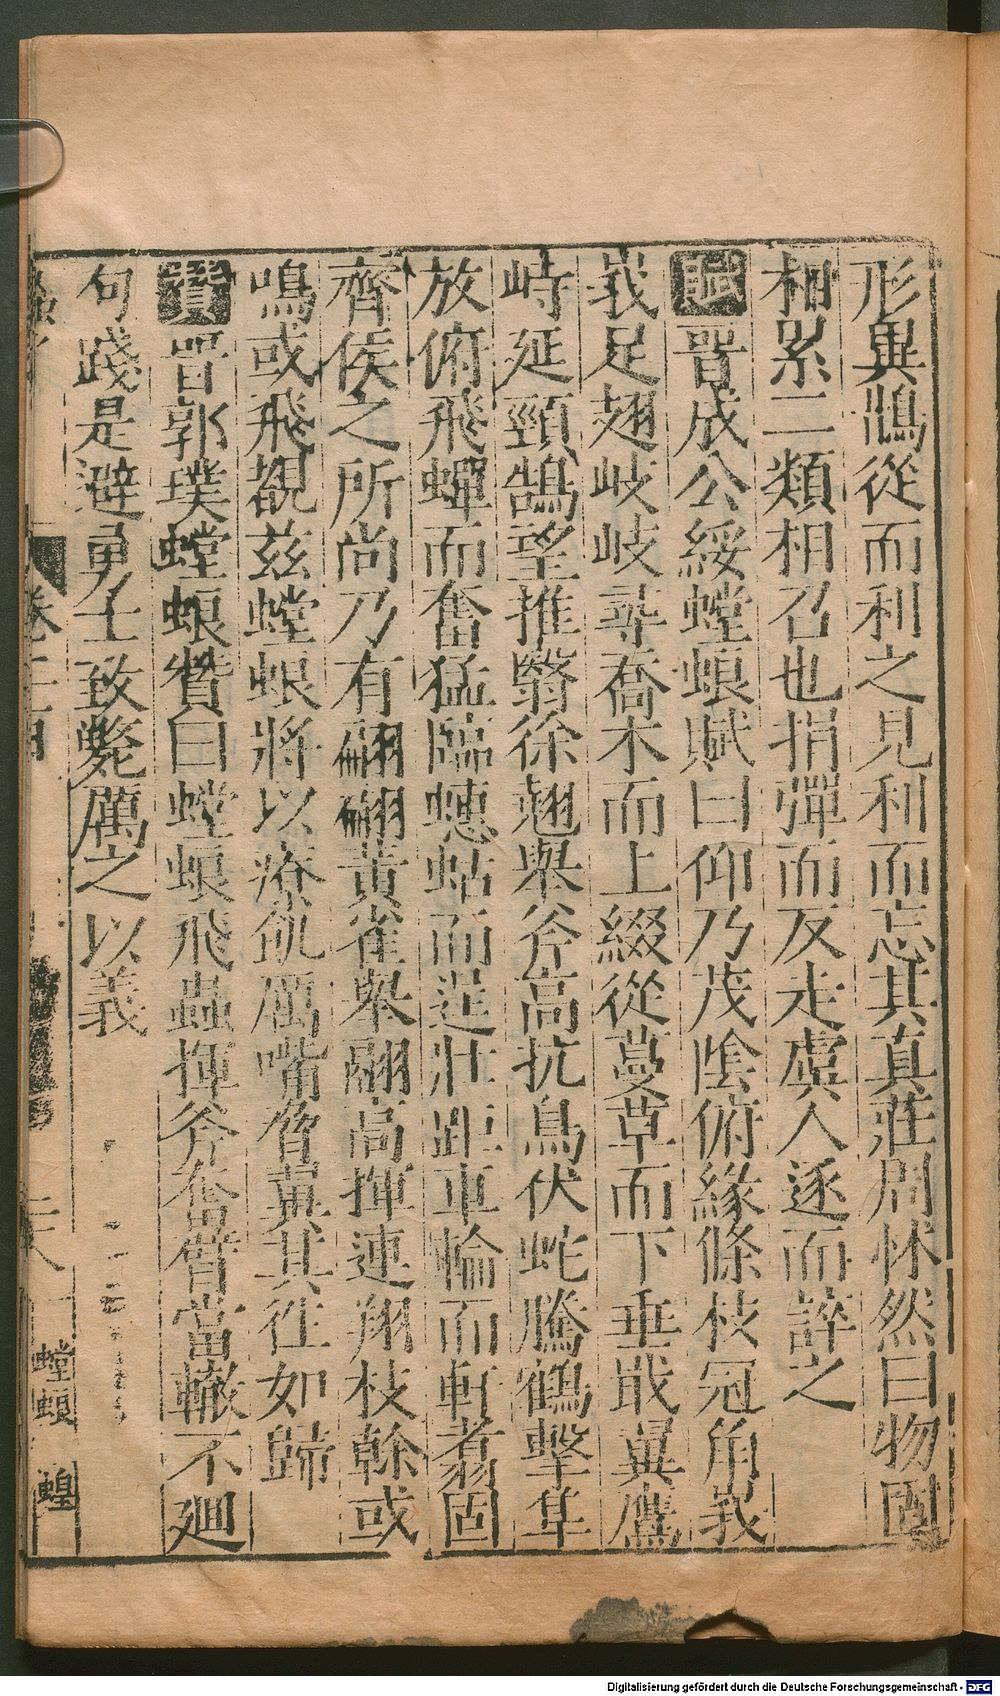 形異鵲從而利之見利而忘其真莊周怵然曰物固
相累二類相召也捐彈而反走虞人逐而誶之
賦晉成公綏螳蜋賦曰仰乃茂陰俯緣條枝冠角峩
峩足翅岐岐尋喬木而上綴從蔓草而下垂戢翼鷹
峙延頸鵠望推翳徐翹舉斧高抗鳥伏蛇騰鶴擊隼
放俯飛蟬而奮猛臨蟪蛄而逞壯距車輪而軒翥固
齊侯之所尚乃有翩翩黃雀舉翮高揮連翔枝幹或
鳴或飛覩茲螳蜋將以療飢厲嘴脅翼其往如歸
贊晉郭璞螳蜋贊曰螳蜋飛蟲揮斧奮臂當轍不迴
句踐是避勇士致斃厲之以義
卷
螳蜋 蝗
Digitalisierung gefördert durch die Deutsche Forschungsgemeinschaft - DFG